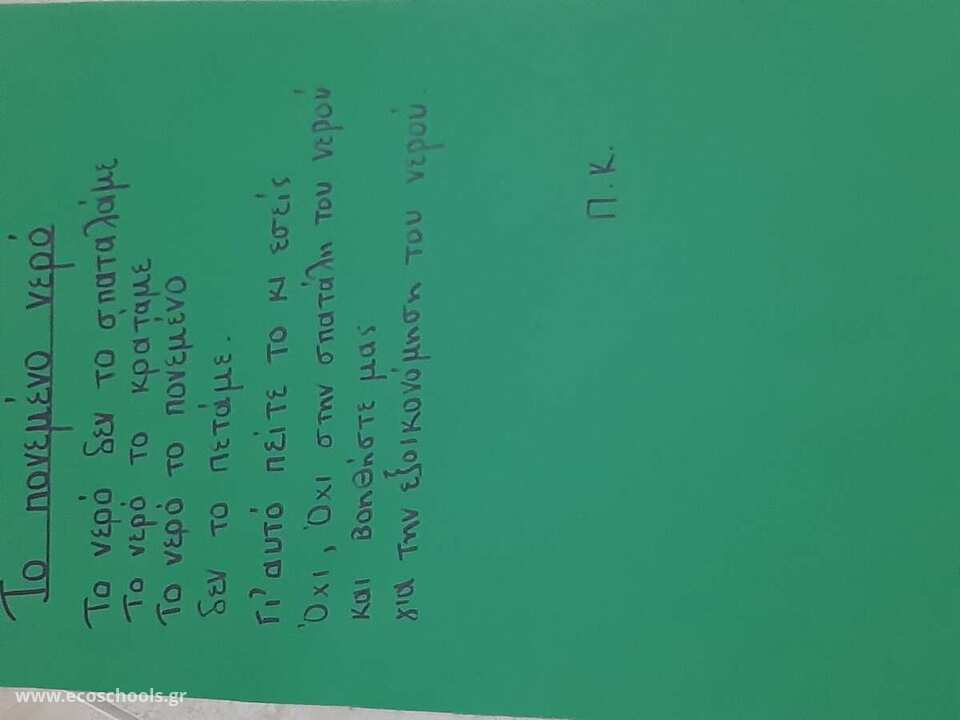 Το πονεμένο νερό
Το νερό δεν το σπαταλάμε
Το νερό το κρατάμε
Το νερό το πονεμένο
δεν το πετάμε.
Γι' αυτό πείτε το κι εσείς
Όχι, Όχι στην σπατάλη του νερού
και βοηθήστε μας
για την εξοικονόμηση του νερού.
Π.Κ.
www.ecoschools.gr